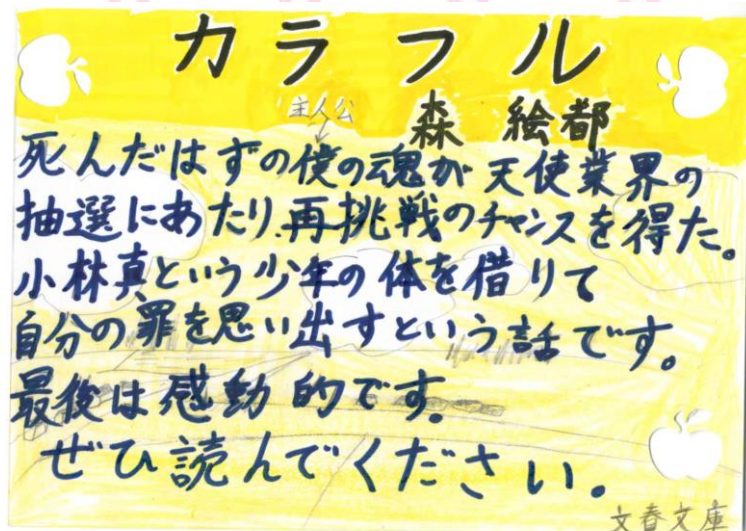 カラフル
森 絵都
主人公
死んだはずの僕の魂が天使業界の
抽選にあたり再挑戦のチャンスを得た。
小林真という少年の体を借りて
自分の罪を思い出すという話です。
最後は感動的です。
ぜひ読んでください。
文春文庫